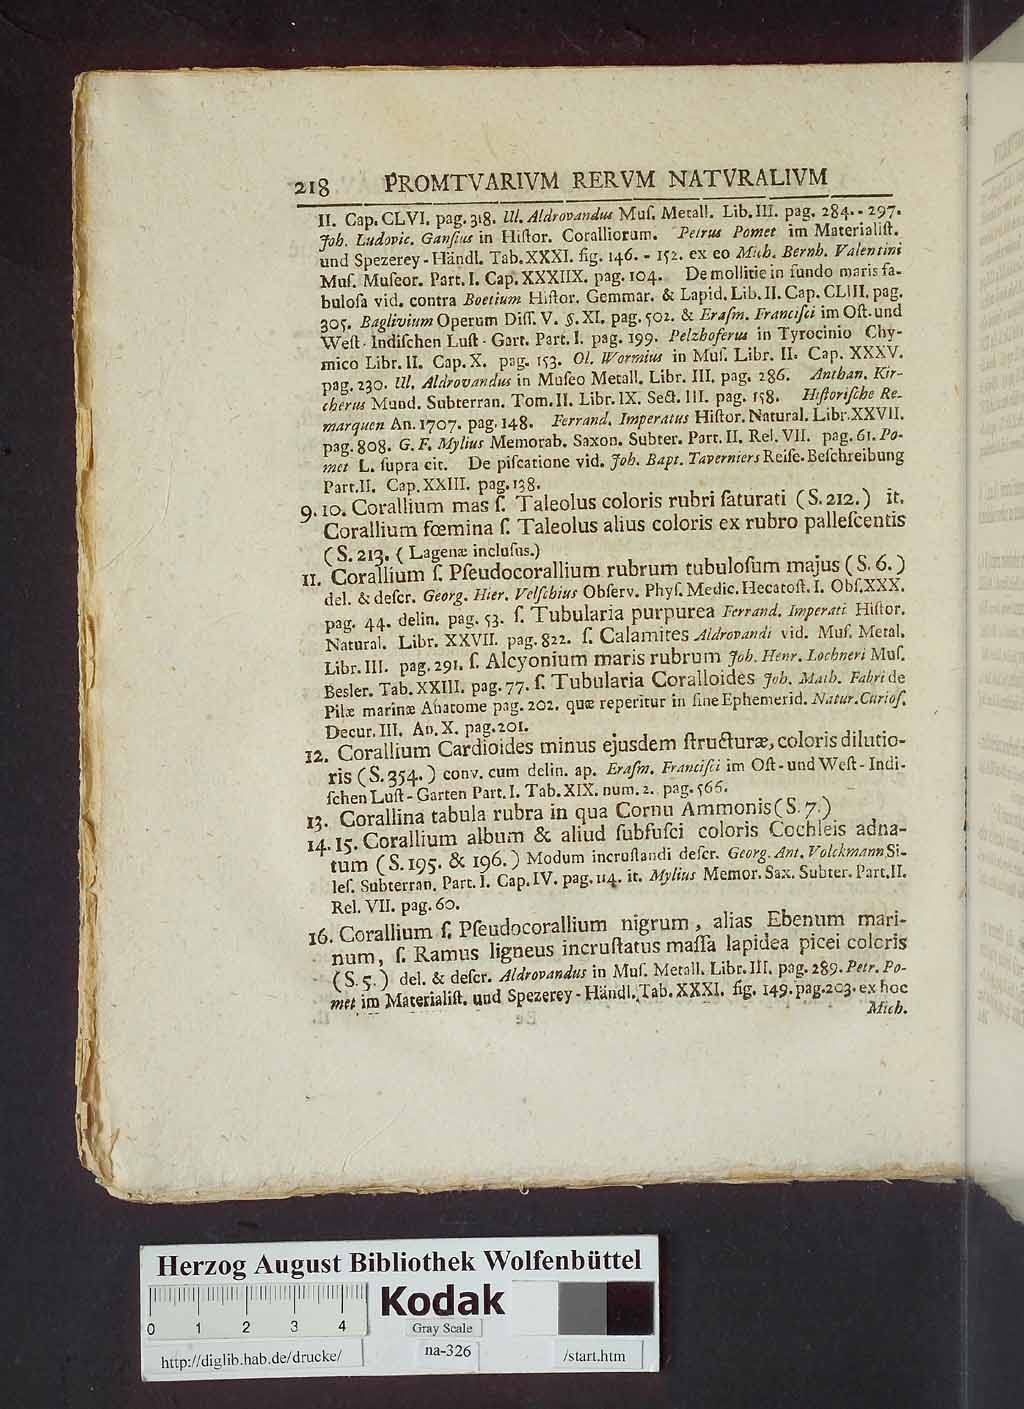 218 PROMTVARIVM RERVM NATVRALIVM
II. Cap. CLVI. pag. 318. Ul. Aldrovandus Muſ. Metall. Lib. III. pag. 284. - 297.
Joh. Ludovic. Ganſius in Hiſtor. Coralliorum. Petrus Pomet im Materialiſt.
und Spezerey-Händl. Tab. XXXI. fig. 146. - 152. ex eo Mich. Bernh. Valentini
Muſ. Muſeor. Part. I. Cap. XXXIIX. pag. 104. De mollitie in fundo maris fa-
buloſa vid. contra Boetium Hiſtor. Gemmar. & Lapid. Lib. II. Cap. CLIII. pag.
305. Baglivium Operum Diſſ. V. §. XI. pag. 502. & Eraſm. Franciſci im Oſt-und
Weſt-Indiſchen Luſt-Gart. Part. I. pag. 199. Pelzhoferus in Tyrocinio Chy-
mico Libr. II. Cap. X. pag. 153. Ol. Wormius in Muſ. Libr. II. Cap. XXXV.
pag. 230. Ul. Aldrovandus in Muſeo Metall. Libr. III. pag. 286. Anthan. Kir-
cherus Mund. Subterran. Tom. II. Libr. IX. Sect. III. pag. 158. Hiſtoriſche Re-
marquen An. 1707. pag. 148. Ferrand. Imperatus Hiſtor. Natural. Libr. XXVII.
pag. 808. G. F. Mylius Memorab. Saxon. Subter. Part. II. Rel. VII. pag. 61. Po-
met L. ſupra cit. De piſcatione vid. Joh. Bapt. Taverniers Reiſe-Beſchreibung
Part. II. Cap. XXIII. pag. 138.
9. 10. Corallium mas ſ. Taleolus coloris rubri ſaturati (S. 212.) it.
Corallium fœmina ſ. Taleolus alius coloris ex rubro palleſcentis
(S. 213. (Lagenæ incluſus.)
11. Corallium ſ. Pſeudocorallium rubrum tubuloſum majus (S. 6.)
del. & deſcr. Georg. Hier. Velſchius Obſerv. Phyſ. Medic. Hecatoſt. I. Obſ. XXX.
pag. 44. delin. pag. 53. ſ. Tubularia purpurea Ferrand. Imperati Hiſtor.
Natural. Libr. XXVII. pag. 822. ſ. Calamites Aldrovandi vid. Muſ. Metal.
Libr. III. pag. 291. ſ. Alcyonium maris rubrum Joh. Henr. Lochneri Muſ.
Besler. Tab. XXIII. pag. 77. ſ. Tubularia Coralloides Joh. Math. Fabri de
Pilæ marinæ Anatome pag. 202. quæ reperitur in fine Ephemerid. Natur. Curioſ.
Decur. III. An. X. pag. 201.
12. Corallium Cardioides minus ejusdem ſtructuræ, coloris dilutio-
ris (S. 354.) conv. cum delin. ap. Eraſm. Franciſci im Oſt-und Weſt-Indi-
ſchen Luſt-Garten Part. I. Tab. XIX. num. 2. pag. 566.
13. Corallina tabula rubra in qua Cornu Ammonis (S. 7.)
14. 15. Corallium album & aliud ſubfuſci coloris Cochleis adna-
tum (S. 195. & 196.) Modum incruſtandi deſcr. Georg. Ant. Volckmann Si-
leſ. Subterran. Part. I. Cap. IV. pag. 114. it. Mylius Memor. Sax. Subter. Part. II.
Rel. VII. pag. 60.
16. Corallium ſ. Pſeudocorallium nigrum, alias Ebenum mari-
num, ſ. Ramus ligneus incruſtatus maſſa lapidea picei coloris
(S. 5.) del. & deſcr. Aldrovandus in Muſ. Metall. Libr. III. pag. 289. Petr. Po-
met im Materialiſt. und Spezerey-Händl. Tab. XXXI. fig. 149. pag. 203. ex hoc
Mich.
Herzog August Bibliothek Wolfenbüttel
0 1 2 3 4
Kodak
Gray Scale
http://diglib.hab.de/drucke/
na-326
/start.htm